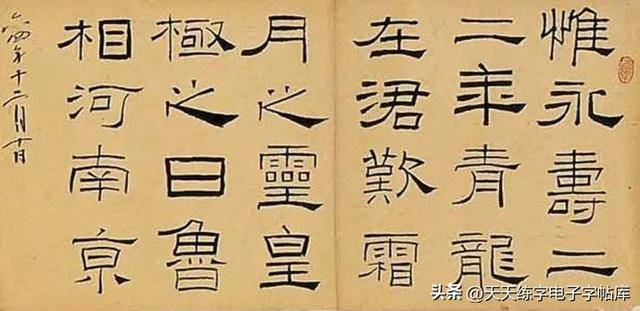 惟永壽二
二年青龍
在涒歎霜
月之靈皇
極之日魯
相河南京
六四年十二月十日
头条 @天天练字电子字帖库